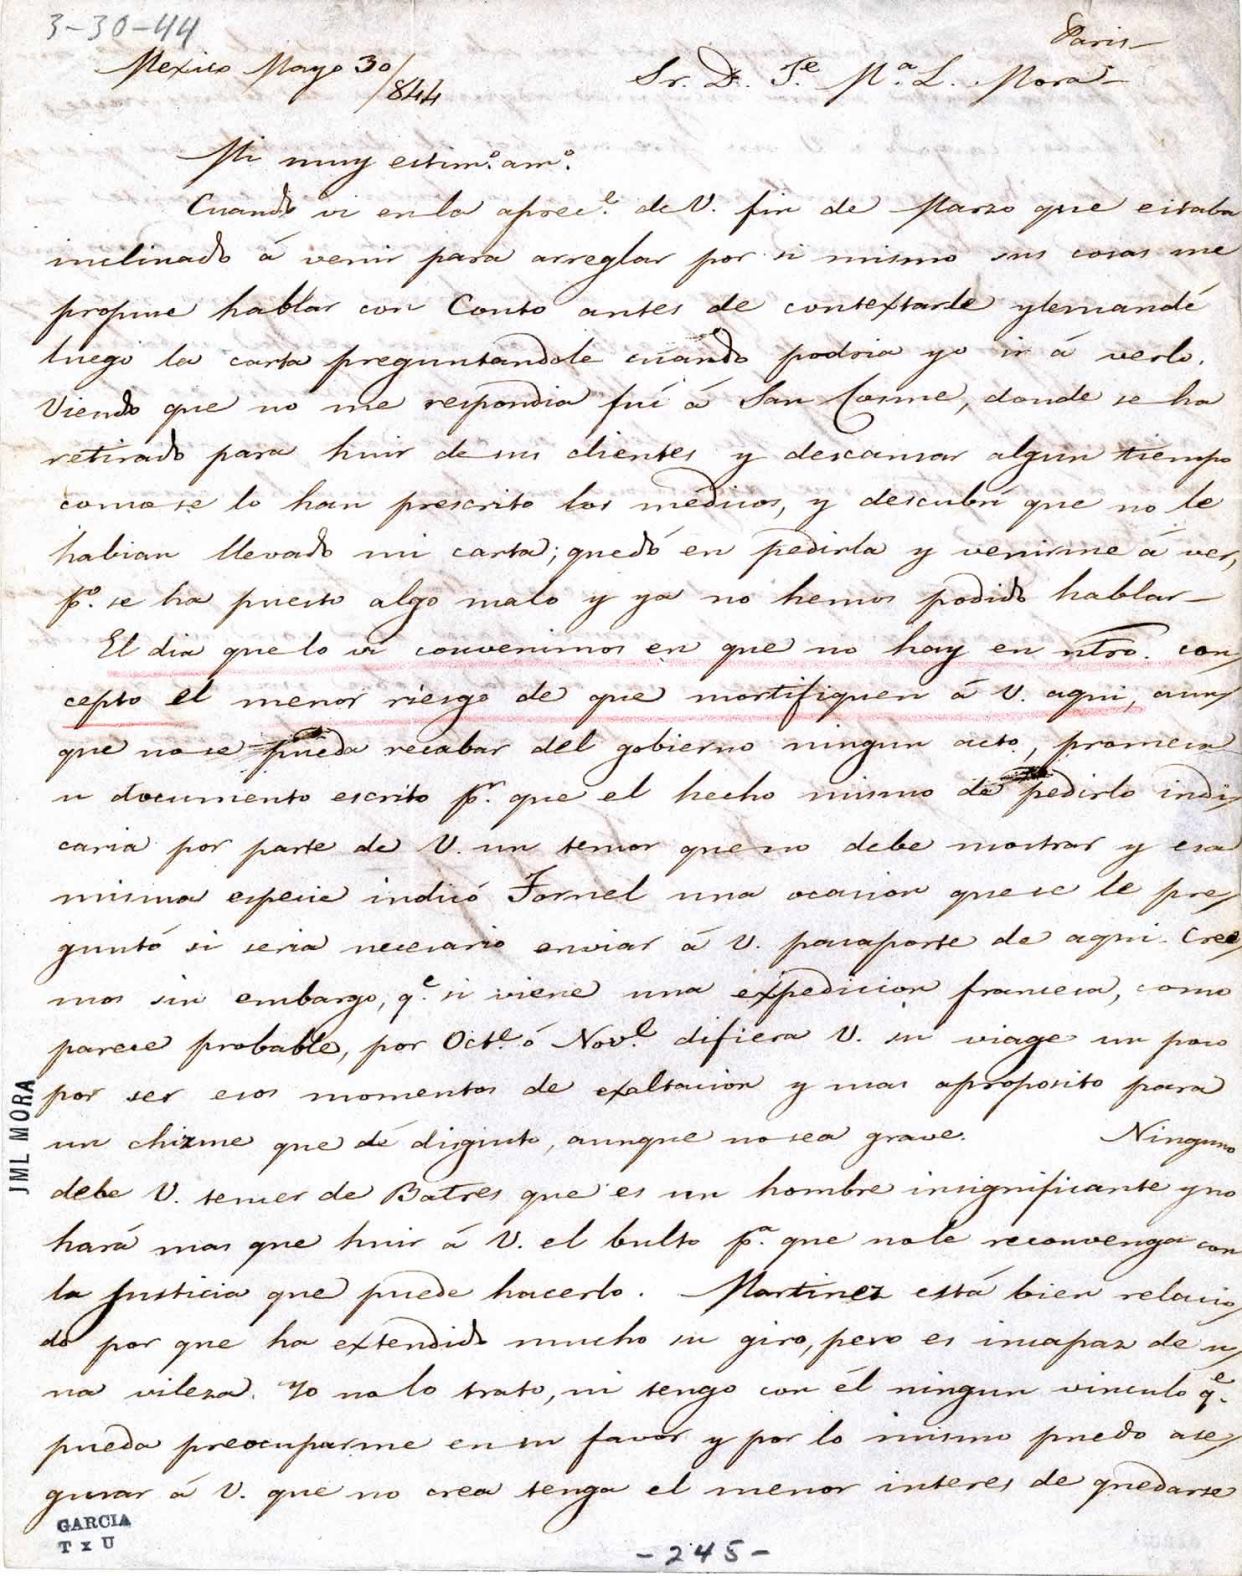 3-30-44
Paris
Mexico Mayo 30/844
Sr. D. Je. Ma. L. Mora
Mi muy estimo. amo.
Cuando vi en la aprece. de V. fin de Marzo que estaba
inclinado á venir para arreglar por si mismo sus cosas me
propuse hablar con Couto antes de contextarle y le mandé
luego la carta preguntandole cuando podria yo ir á verlo.
Viendo que no me respondia fuí á San Cosme, donde se ha
retirado para huir de sus clientes y descansar algun tiempo
como se lo han prescrito los médicos, y descubrí que no le
habian llevado mi carta; quedó en pedirla y venirme á ver,
po. se ha puesto algo malo y ya no hemos podido hablar—
El dia que lo vi convenimos en que no hay en ntro. con/
cepto el menor riesgo de que mortifiquen á V. aqui, aun/
que no se pueda recabar del gobierno ningun acto, promesa
u documento escrito pr. que el hecho mismo de pedirlo indi/
caria por parte de V. un temor que no debe mostrar y esa
misma especie indicó Tornel una ocasion que se le pre/
guntó si seria necesario enviar á V. pasaporte de aqui. Cree/
mos sin embargo, qe. si viene una expedicion francesa, como
parece probable, por Octe. ó Nove. difiera V. su viage un poco
por ser esos momentos de exaltacion y mas aproposito para
un chizme que dé disgusto, aunque no sea grave. Ninguno
debe V. temer de Batres que es un hombre insignificante y no
hará mas que huir á V. el bulto pa. que no le reconvenga con
la justicia que puede hacerlo. Martinez está bien relacio/
do por que ha extendido mucho su giro, pero es incapaz de u/
na vileza. Yo no lo trato, ni tengo con él ningun vinculo qe.
pueda preocuparme en su favor y por lo mismo puedo ase/
gurar á V. que no crea tenga el menor interes de quedarse
JML MORA
GARCIA
T x U
-245-